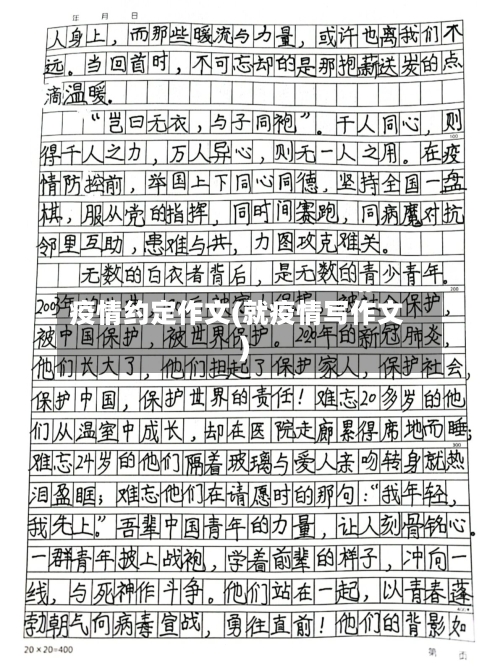 年 月 日
人身上，而那些暖流与力量，或许也离我们不
远。当回首时，不可忘却的是那抱薪送炭的点
滴温暖。
“岂曰无衣，与子同袍”。千人同心，则
得千人之力，万人异心，则无一人之用。在疫
情防控前，举国上下同心同德，坚持全国一盘
棋，服从党的指挥，同时间赛跑，同病魔对抗
邻里互助，患难与共，力图攻克难关。
无数的白衣者背后，是无数的青少青年。
2003年的
疫情约定作文(就疫情写作文
)
保护，
被中国保护，被世界保护。2020年的新冠肺炎，
他们长大了，他们担起了保护家人，保护社会，
保护中国，保护世界的责任！难忘20多岁的他
们从温室中成长，却在医院走廊累得席地而睡；
难忘24岁的他们隔着玻璃与爱人亲吻转身就热
泪盈眶；难忘他们在请愿时的那句：“我年轻，
我先上。”吾辈中国青年的力量，让人刻骨铭心。
一群青年披上战袍，学着前辈的样子，冲向一
线，与死神作斗争。他们站在一起，以青春蓬
勃朝气向病毒宣战，勇往直前！他们的背影如
20×20=400
第 面